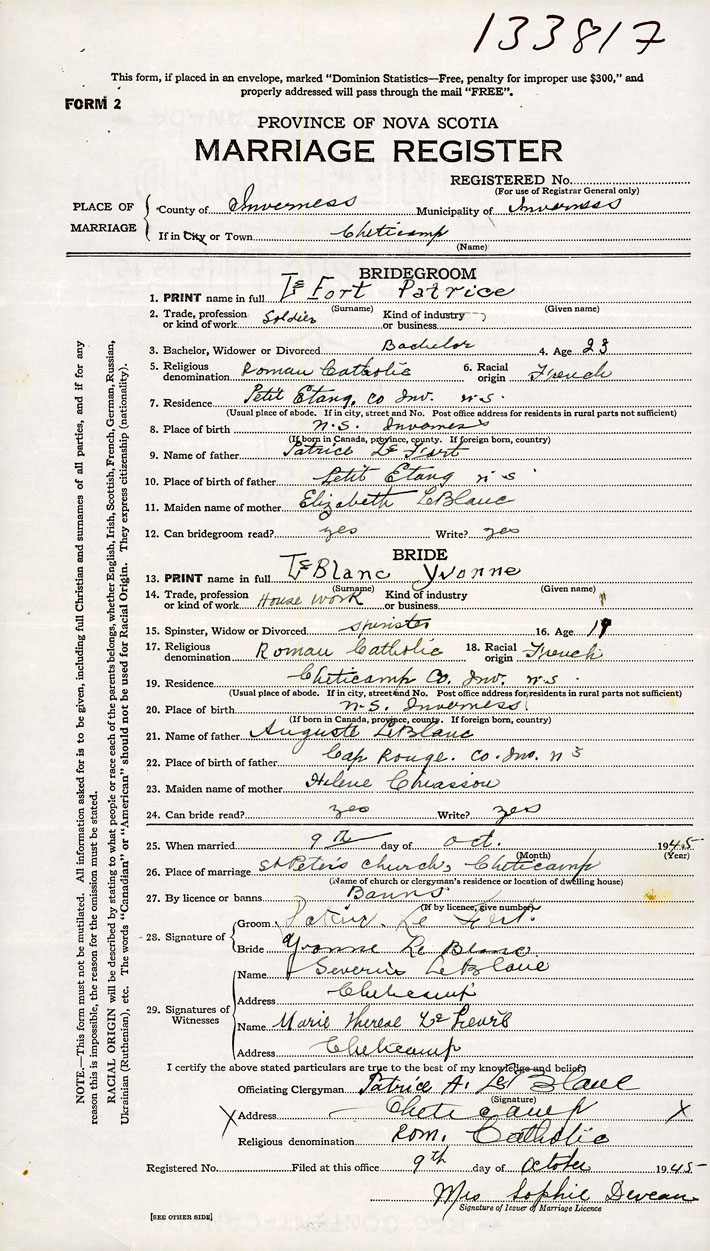 133817
This form, if placed in an envelope, marked "Dominion Statistics—Free, penalty for improper use $300," and
properly addressed will pass through the mail "FREE".
FORM 2
PROVINCE OF NOVA SCOTIA
MARRIAGE REGISTER
REGISTERED No.
(For use of Registrar General only)
PLACE OF MARRIAGE
County of Inverness Municipality of Inverness
If in City or Town Cheticamp
(Name)
BRIDEGROOM
1. PRINT name in full Le Fort Patrice
(Surname) (Given name)
2. Trade, profession or kind of work Soldier Kind of industry or business
3. Bachelor, Widower or Divorced Bachelor 4. Age 23
5. Religious denomination Roman Catholic 6. Racial origin French
7. Residence Petit Etang, Co Inv. N.S.
(Usual place of abode. If in city, street and No. Post office address for residents in rural parts not sufficient)
8. Place of birth N.S. Inverness
(If born in Canada, province, county. If foreign born, country)
9. Name of father Patrice Le Fort
10. Place of birth of father Petit Etang N S
11. Maiden name of mother Elizabeth LeBlanc
12. Can bridegroom read? yes Write? yes
BRIDE
13. PRINT name in full Le Blanc Yvonne
(Surname) (Given name)
14. Trade, profession or kind of work House work Kind of industry or business
15. Spinster, Widow or Divorced spinster 16. Age 19
17. Religious denomination Roman Catholic 18. Racial origin French
19. Residence Cheticamp Co. Inv. N.S.
(Usual place of abode. If in city, street and No. Post office address for residents in rural parts not sufficient)
20. Place of birth N.S. Inverness
(If born in Canada, province, county. If foreign born, country)
21. Name of father Auguste LeBlanc
22. Place of birth of father Cap Rouge. Co. Inv. N S
23. Maiden name of mother Helene Chiasson
24. Can bride read? yes Write? yes
25. When married 9th day of Oct. 1945
(Month) (Year)
26. Place of marriage St Peter's church, Cheticamp
(Name of church or clergyman's residence or location of dwelling house)
27. By licence or banns Banns
(If by licence, give number)
28. Signature of
Groom Patrice Le Fort
Bride Yvonne Le Blanc
29. Signatures of Witnesses
Name Severin LeBlanc
Address Cheticamp
Name Marie Therese Le
Address Cheticamp
I certify the above stated particulars are true to the best of my knowledge and belief.
Officiating Clergyman Patrice A. Le Blanc
(Signature)
X Address Cheticamp X
Religious denomination Rom. Catholic
Registered No. Filed at this office 9th day of October 1945
Mrs Sophie Deveau
Signature of Issuer of Marriage Licence
[SEE OTHER SIDE]
NOTE.—This form must not be mutilated. All information asked for is to be given, including full Christian and surnames of all parties, and if for any
reason this is impossible, the reason for the omission must be stated.
RACIAL ORIGIN will be described by stating to what people or race each of the parents belongs, whether English, Irish, Scottish, French, German, Russian,
Ukrainian (Ruthenian), etc. The words "Canadian" or "American" should not be used for Racial Origin. They express citizenship (nationality).